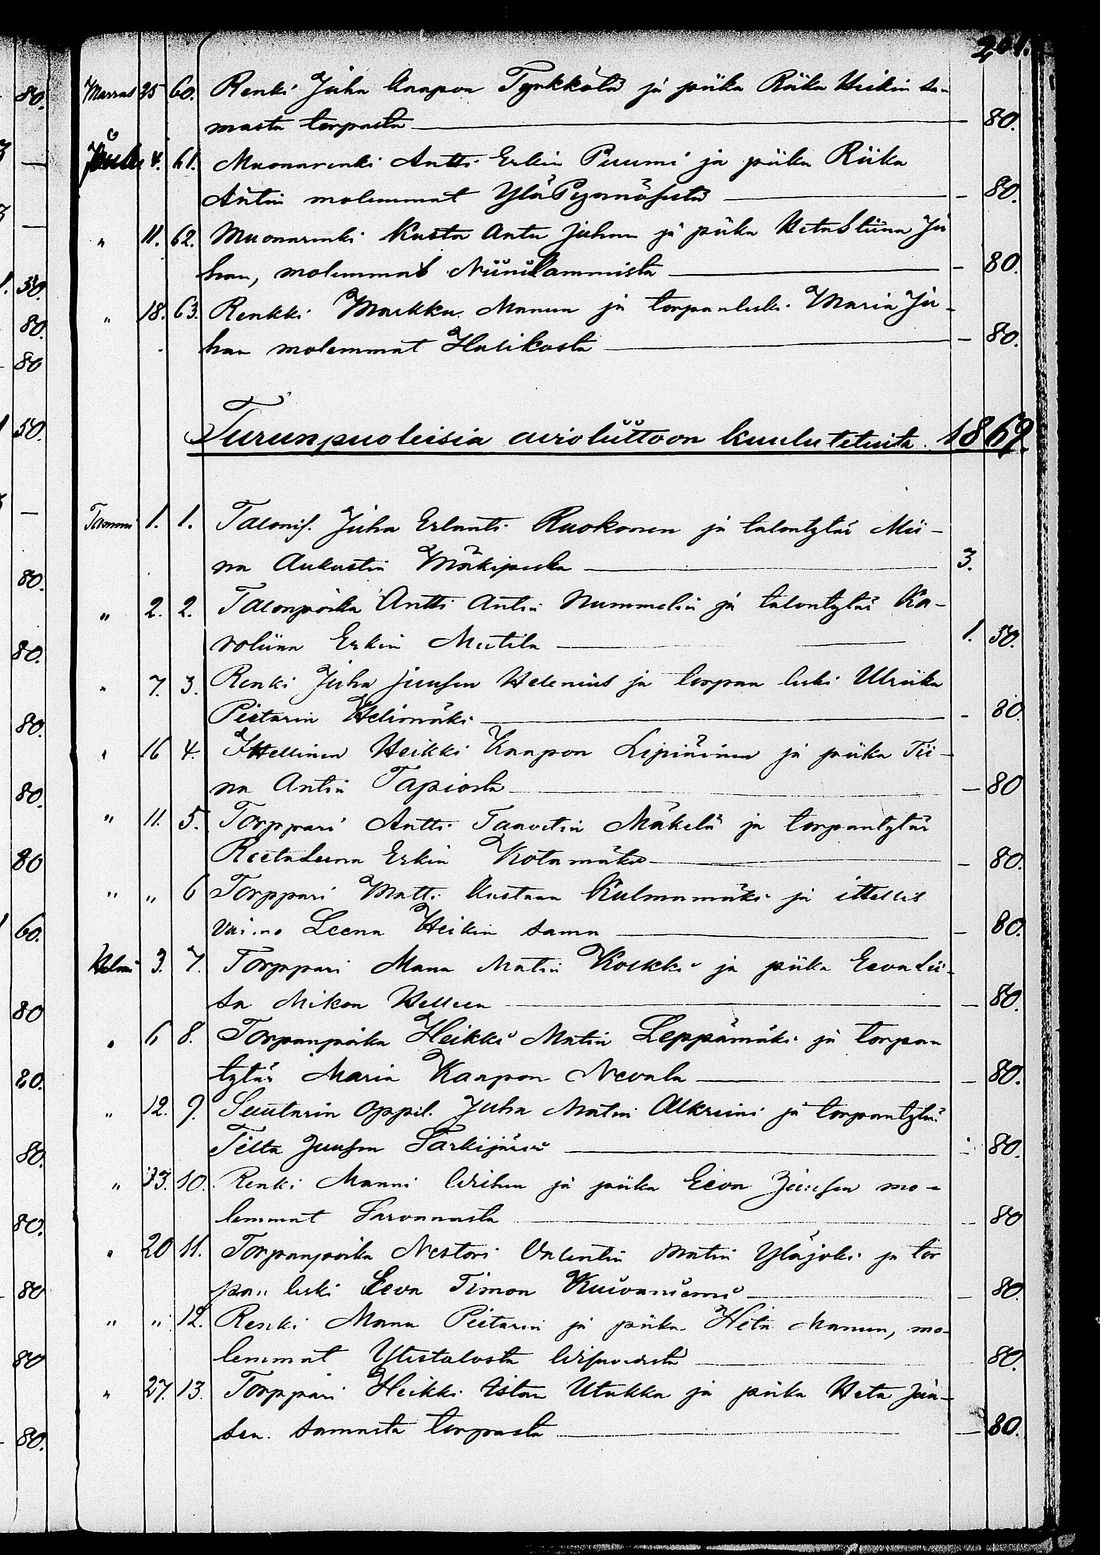 201.
Marras 25 60. Renki Juha Kaapon Tyrkkölä ja piika Riika Heikin sa-
masta torpasta — 80.
Joulu 4. 61. Muonarenki Antti Erkin Puumi ja piika Riika
Antin molemmat YläPyörnäs — 80.
" 11. 62. Muonarenki Kusta Antu Juhan ja piika HetaStiina Ju
han, molemmat Niinilammista — 80.
" 18. 63. Renkki Markku Manun ja torpanleski Maria Ju-
han molemmat Halikosta — 80.
Turunpuoleisia avioliittoon kuulutetuita 1869.
Tammi 1. 1. Talonis. Juha Erlanti Ruokonen ja talontytär Mii-
na Aukustin Mäkipeska — 3.
" 2. 2. Talonpoika Antti Antin Nummelin ja talontytär Ka-
roliina Erkin Mutila — 1. 50.
" 7. 3. Renki Juha Juusen Helenius ja torpan leski Ulriika
Pietarin Helimäki — 80
" 16 4. Ittellinen Heikki Kaapon Lipiäinen ja piika Tii-
na Antin Tapiosta — 80
" 11. 5. Torppari Antti Taavetin Mäkelä ja torpantytär
ReetaLeena Erkin Kotamäki — 80.
" " 6 Torppari Matti Kustaan Kulmamäki ja ittellis
vaimo Leena Heikin sama — 80.
Helmi 3. 7. Torppari Manu Matin Koukki ja piika EevaLii-
sa Mikon — 80.
" 6 8. Torpanpoika Heikki Matin Leppämäki ja torpan
tytär Maria Kaapon Nevala — 80.
" 12. 9. Suutarin oppil. Juha Matin Alkriini ja torpantytär
Tilta Juusen Särkijärvi — 80.
" 13. 10. Renki Manni Wilhen ja piika Eeva Juusen mo-
lemmat Sarvannasta — 80
" 20 11. Torpanpoika Nestori Valentin Matin Yläjoki ja tor
pan leski Eeva Timon Kuivaniemi — 80.
" " 12. Renki Manu Pietarin ja piika Heta Manun, mo-
lemmat Ylistalosta — 80.
" 27. 13. Torppari Heikki Eslan Utukka ja piika Heta Juu-
sen samasta torpasta — 80.